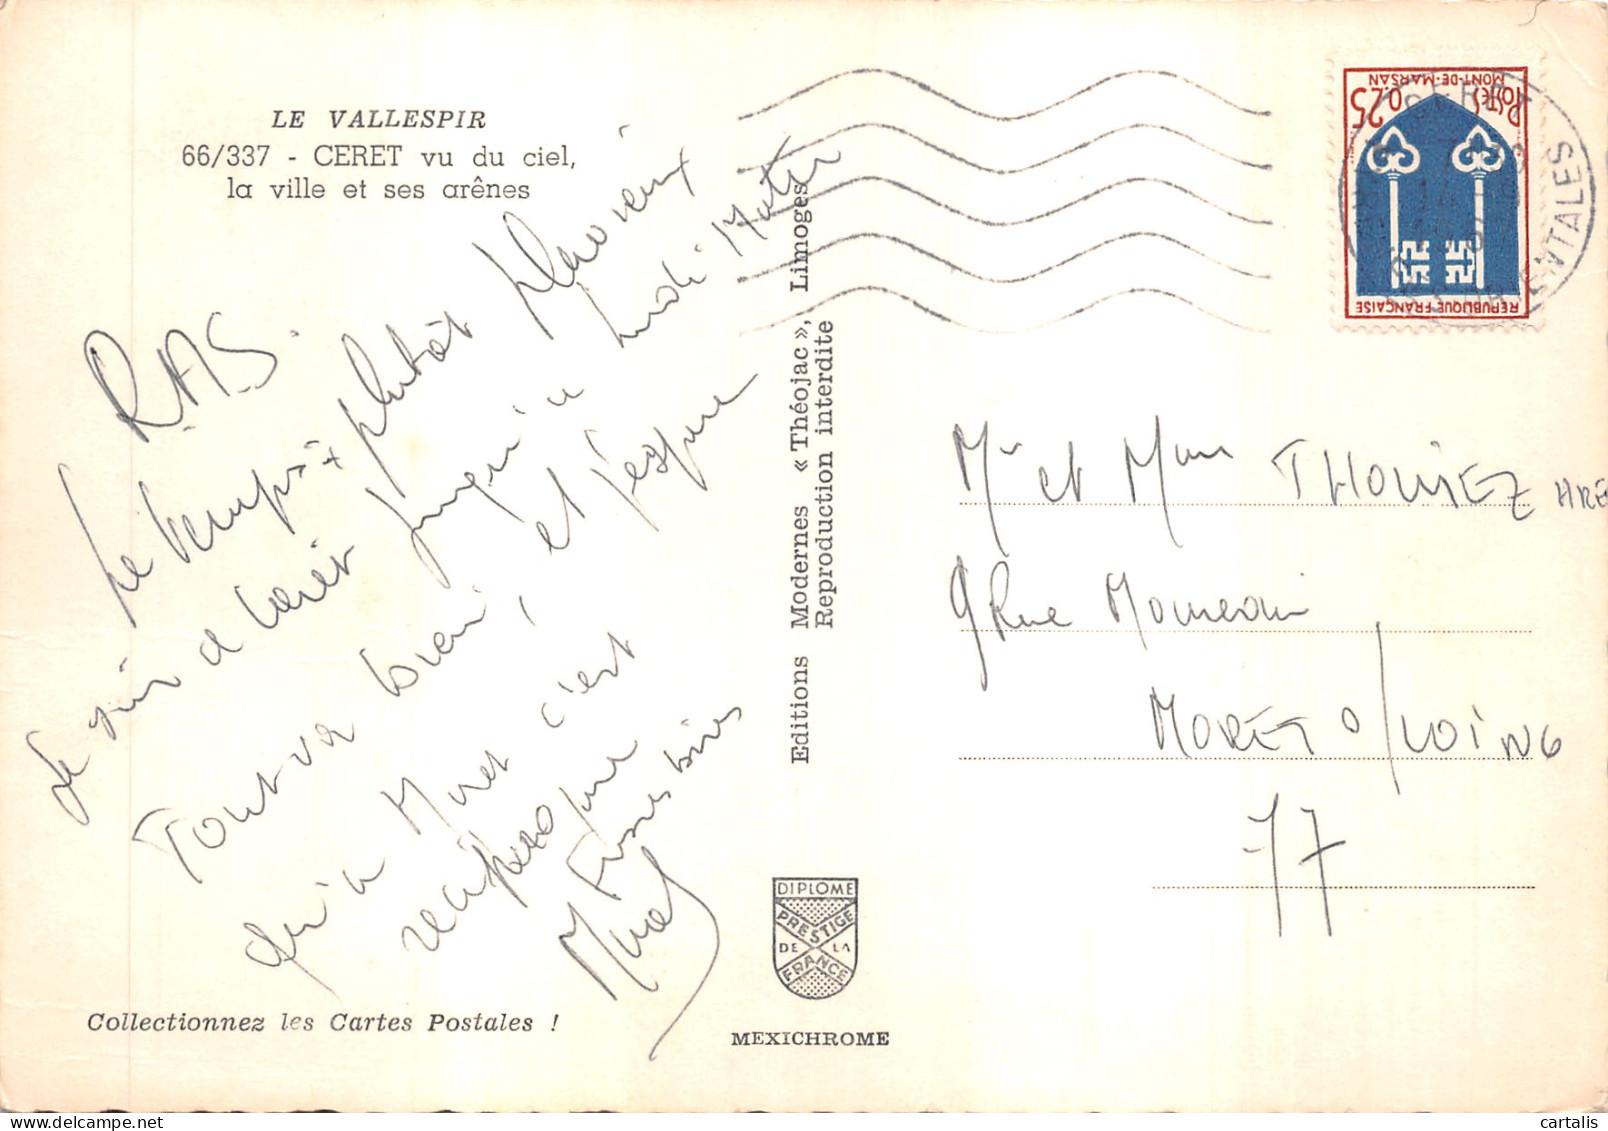 LE VALLESPIR
66/337 - CERET vu du ciel,
la ville et ses arênes
RAS
Le temps plutôt pluvieux
Le soir à Céret jusqu'à lundi matin
Tout va bien et j'espère
qu'à Moret c'est
réciproque
Grosses bises
Editions Modernes « Théojac », Limoges
Reproduction interdite
Collectionnez les Cartes Postales !
DIPLOME
PRESTIGE
DE LA
FRANCE
MEXICHROME
POSTES
0,25
MONT-DE-MARSAN
REPUBLIQUE FRANÇAISE
CERET
Mr et Mme
9 Rue
MORET S/LOING
77
cartalis
delcampe.net